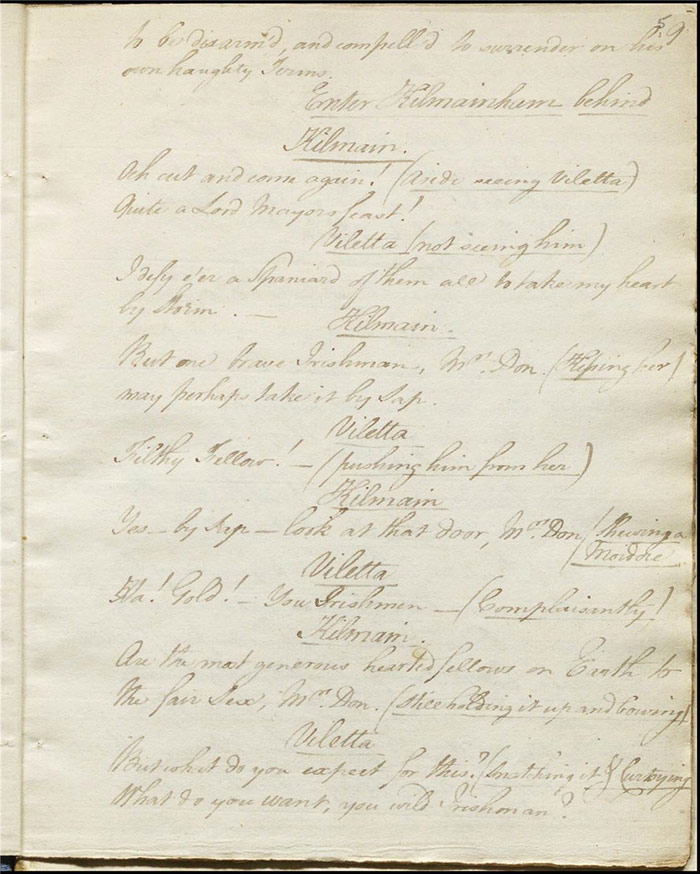 59
to be disarm'd, and compell'd to surrender on his
own haughty Terms.
Enter Kilmainham behind
Kilmain.
Ah cut and come again! (Aside seeing Viletta)
Quite a Lord Mayors feast!
Viletta (not seeing him)
I defy e'er a Spaniard of them all to take my heart
by Storm. —
Kilmain.
But one brave Irishman, Mrs. Don. (Kissing her)
may perhaps take it by Sap.
Viletta
Filthy Fellow! — (pushing him from her)
Kilmain
Yes — by Sap — look at that door, Mrs. Don, (shewing a
Moidore
Viletta
Ha! Gold! — You Irishmen — (Complaisantly)
Kilmain.
Are the most generous hearted fellows on Earth to
the fair Sex, Mrs. Don. (still holding it up and bowing)
Viletta
But what do you expect for this? (snatching it & Curtsying
What do you want, you wild Irishman?